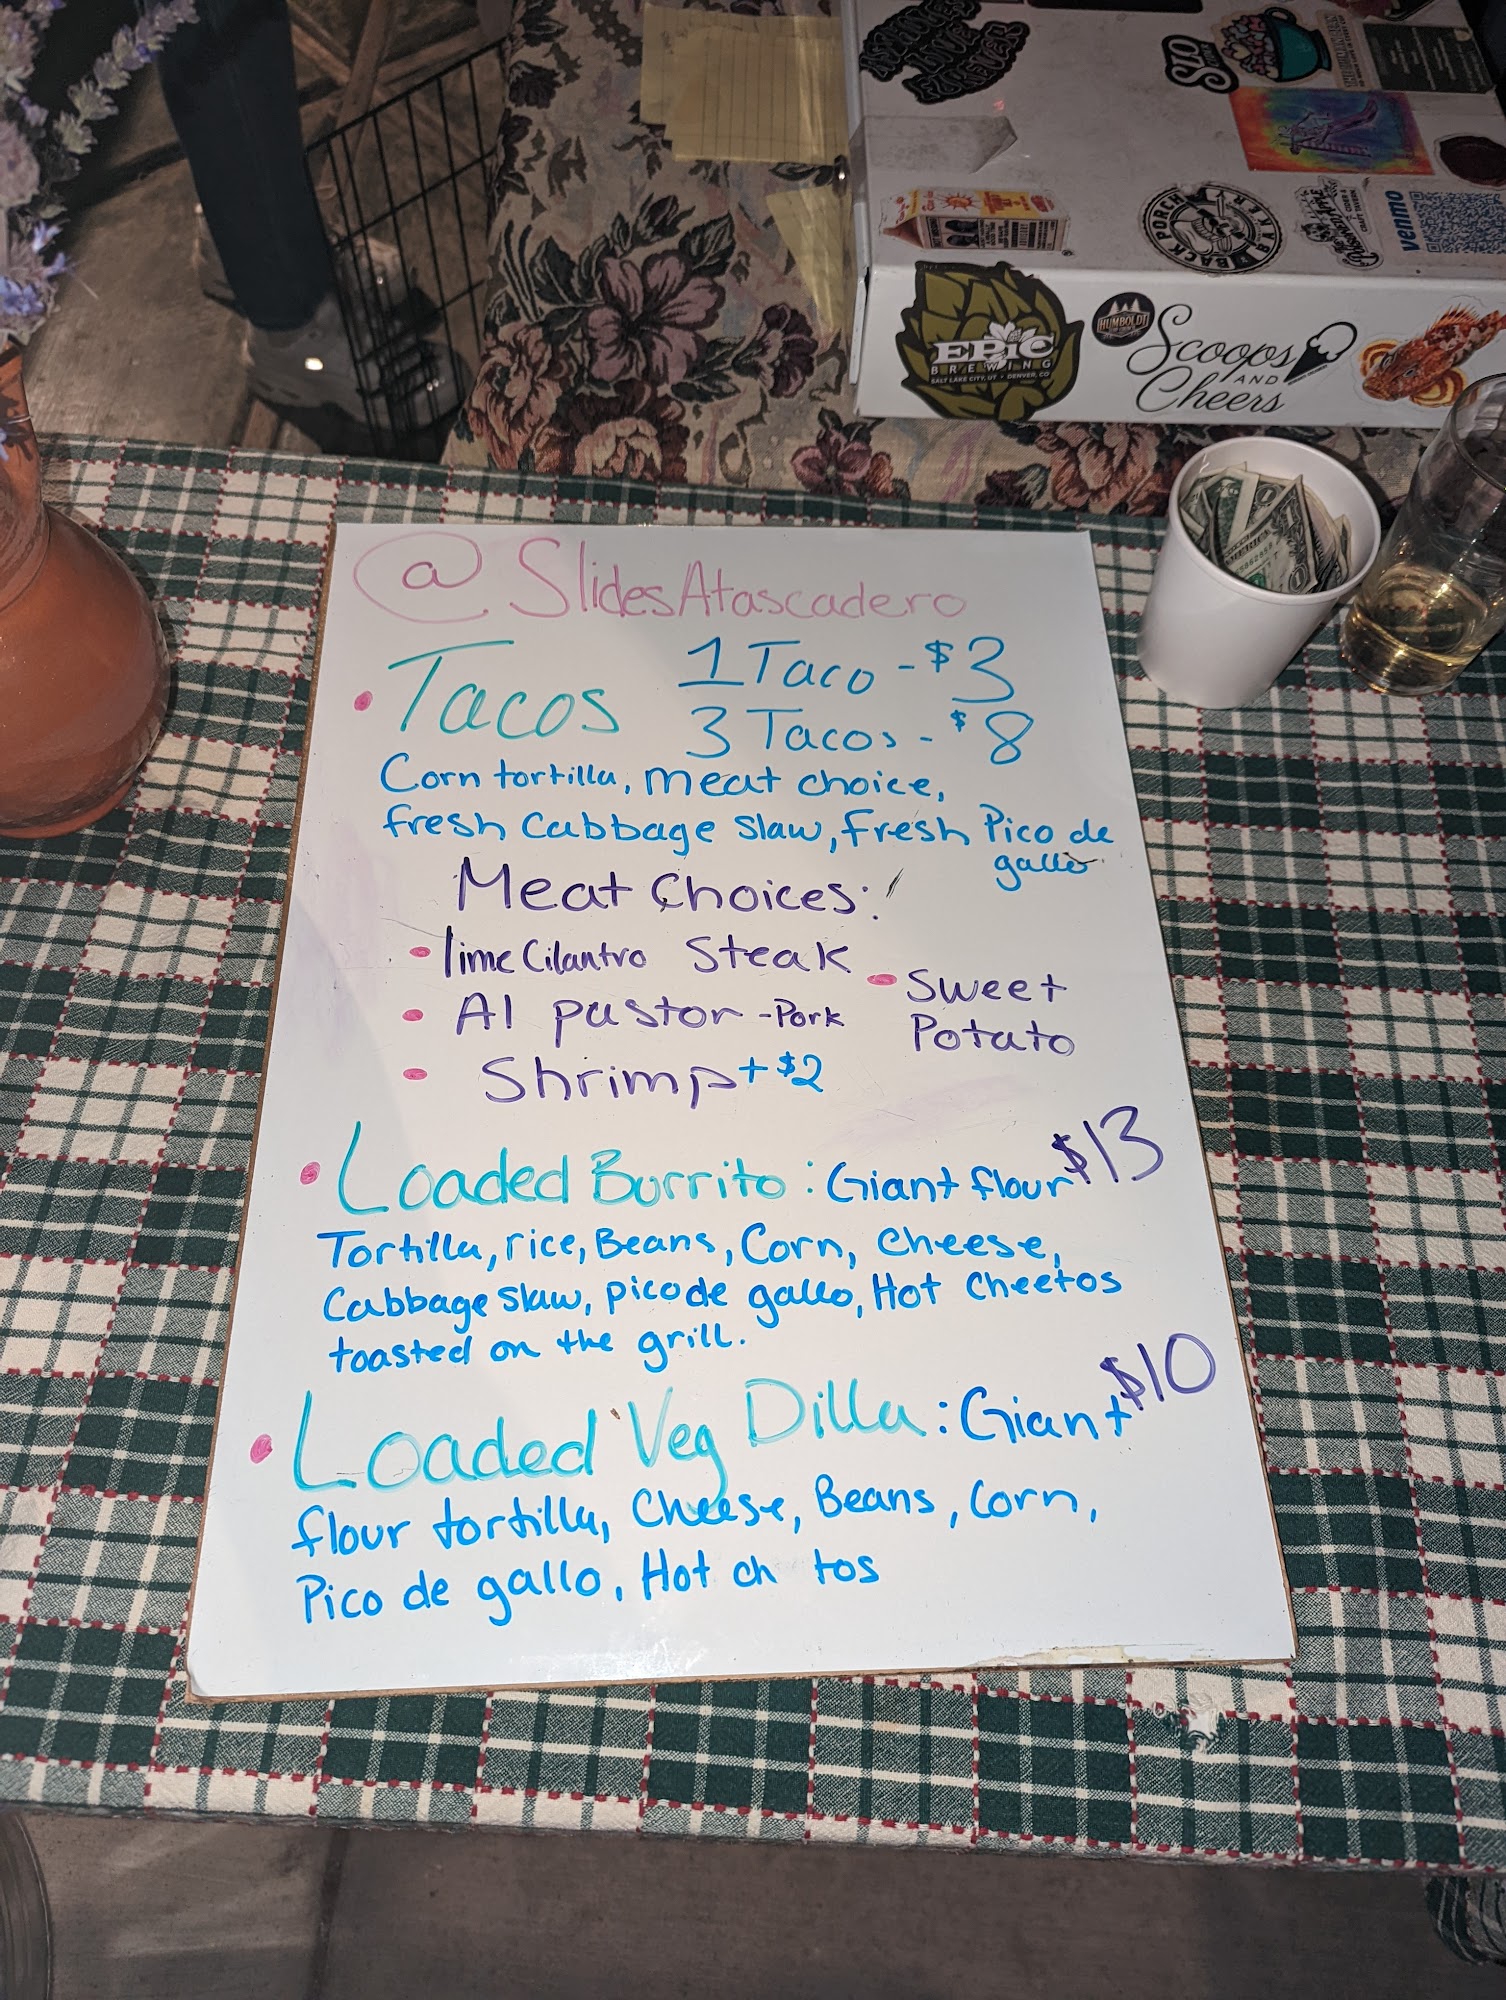 SLO
BACK PORCH
BAKERY
venmo
EPIC
BREWING
SALT LAKE CITY, UT • DENVER, CO
HUMBOLDT
Scoops
AND
Cheers
@SlidesAtascadero
• Tacos 1 Taco - $3
3 Tacos - $8
Corn tortilla, meat choice,
fresh Cabbage Slaw, fresh Pico de
gallo
Meat Choices:
• lime Cilantro Steak
• Sweet
Potato
• Al pastor - Pork
• Shrimp + $2
• Loaded Burrito: Giant flour $13
Tortilla, rice, Beans, Corn, cheese,
Cabbage Slaw, pico de gallo, Hot Cheetos
toasted on the grill.
• Loaded Veg Dilla: Giant $10
flour tortilla, Cheese, Beans, Corn,
Pico de gallo, Hot ch tos